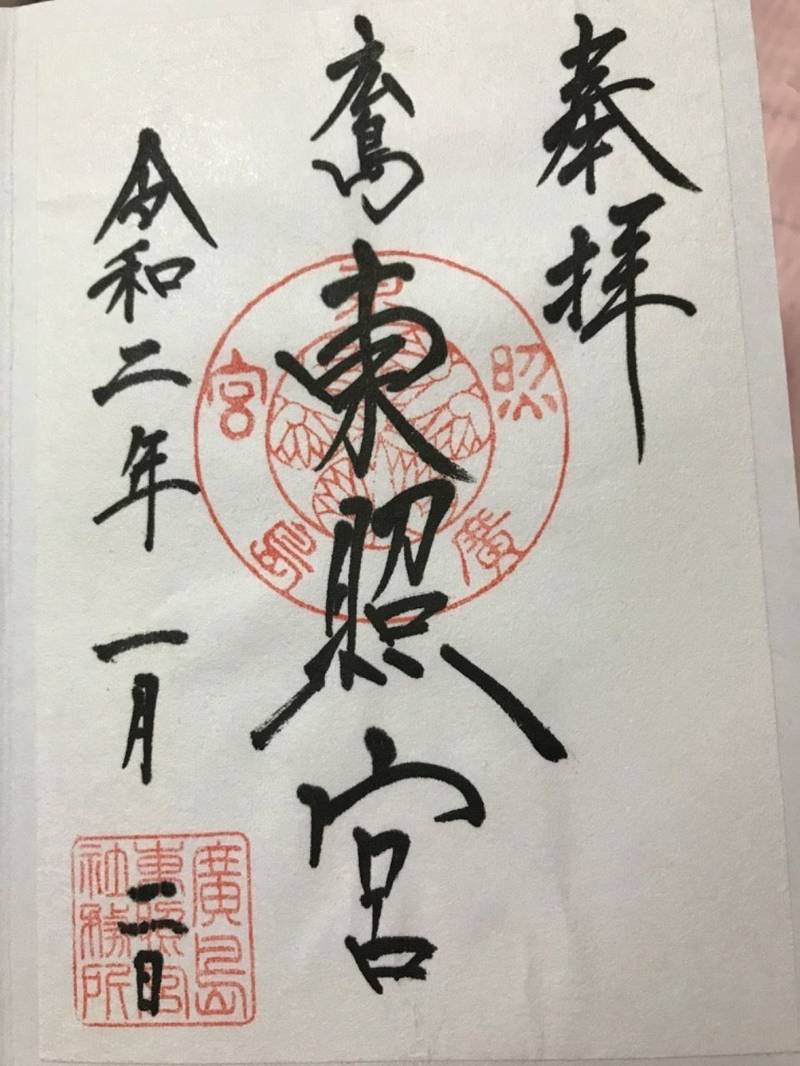 奉拝
広島東照宮
廣島東照宮
令和二年一月三日
廣島
東照宮
社務所